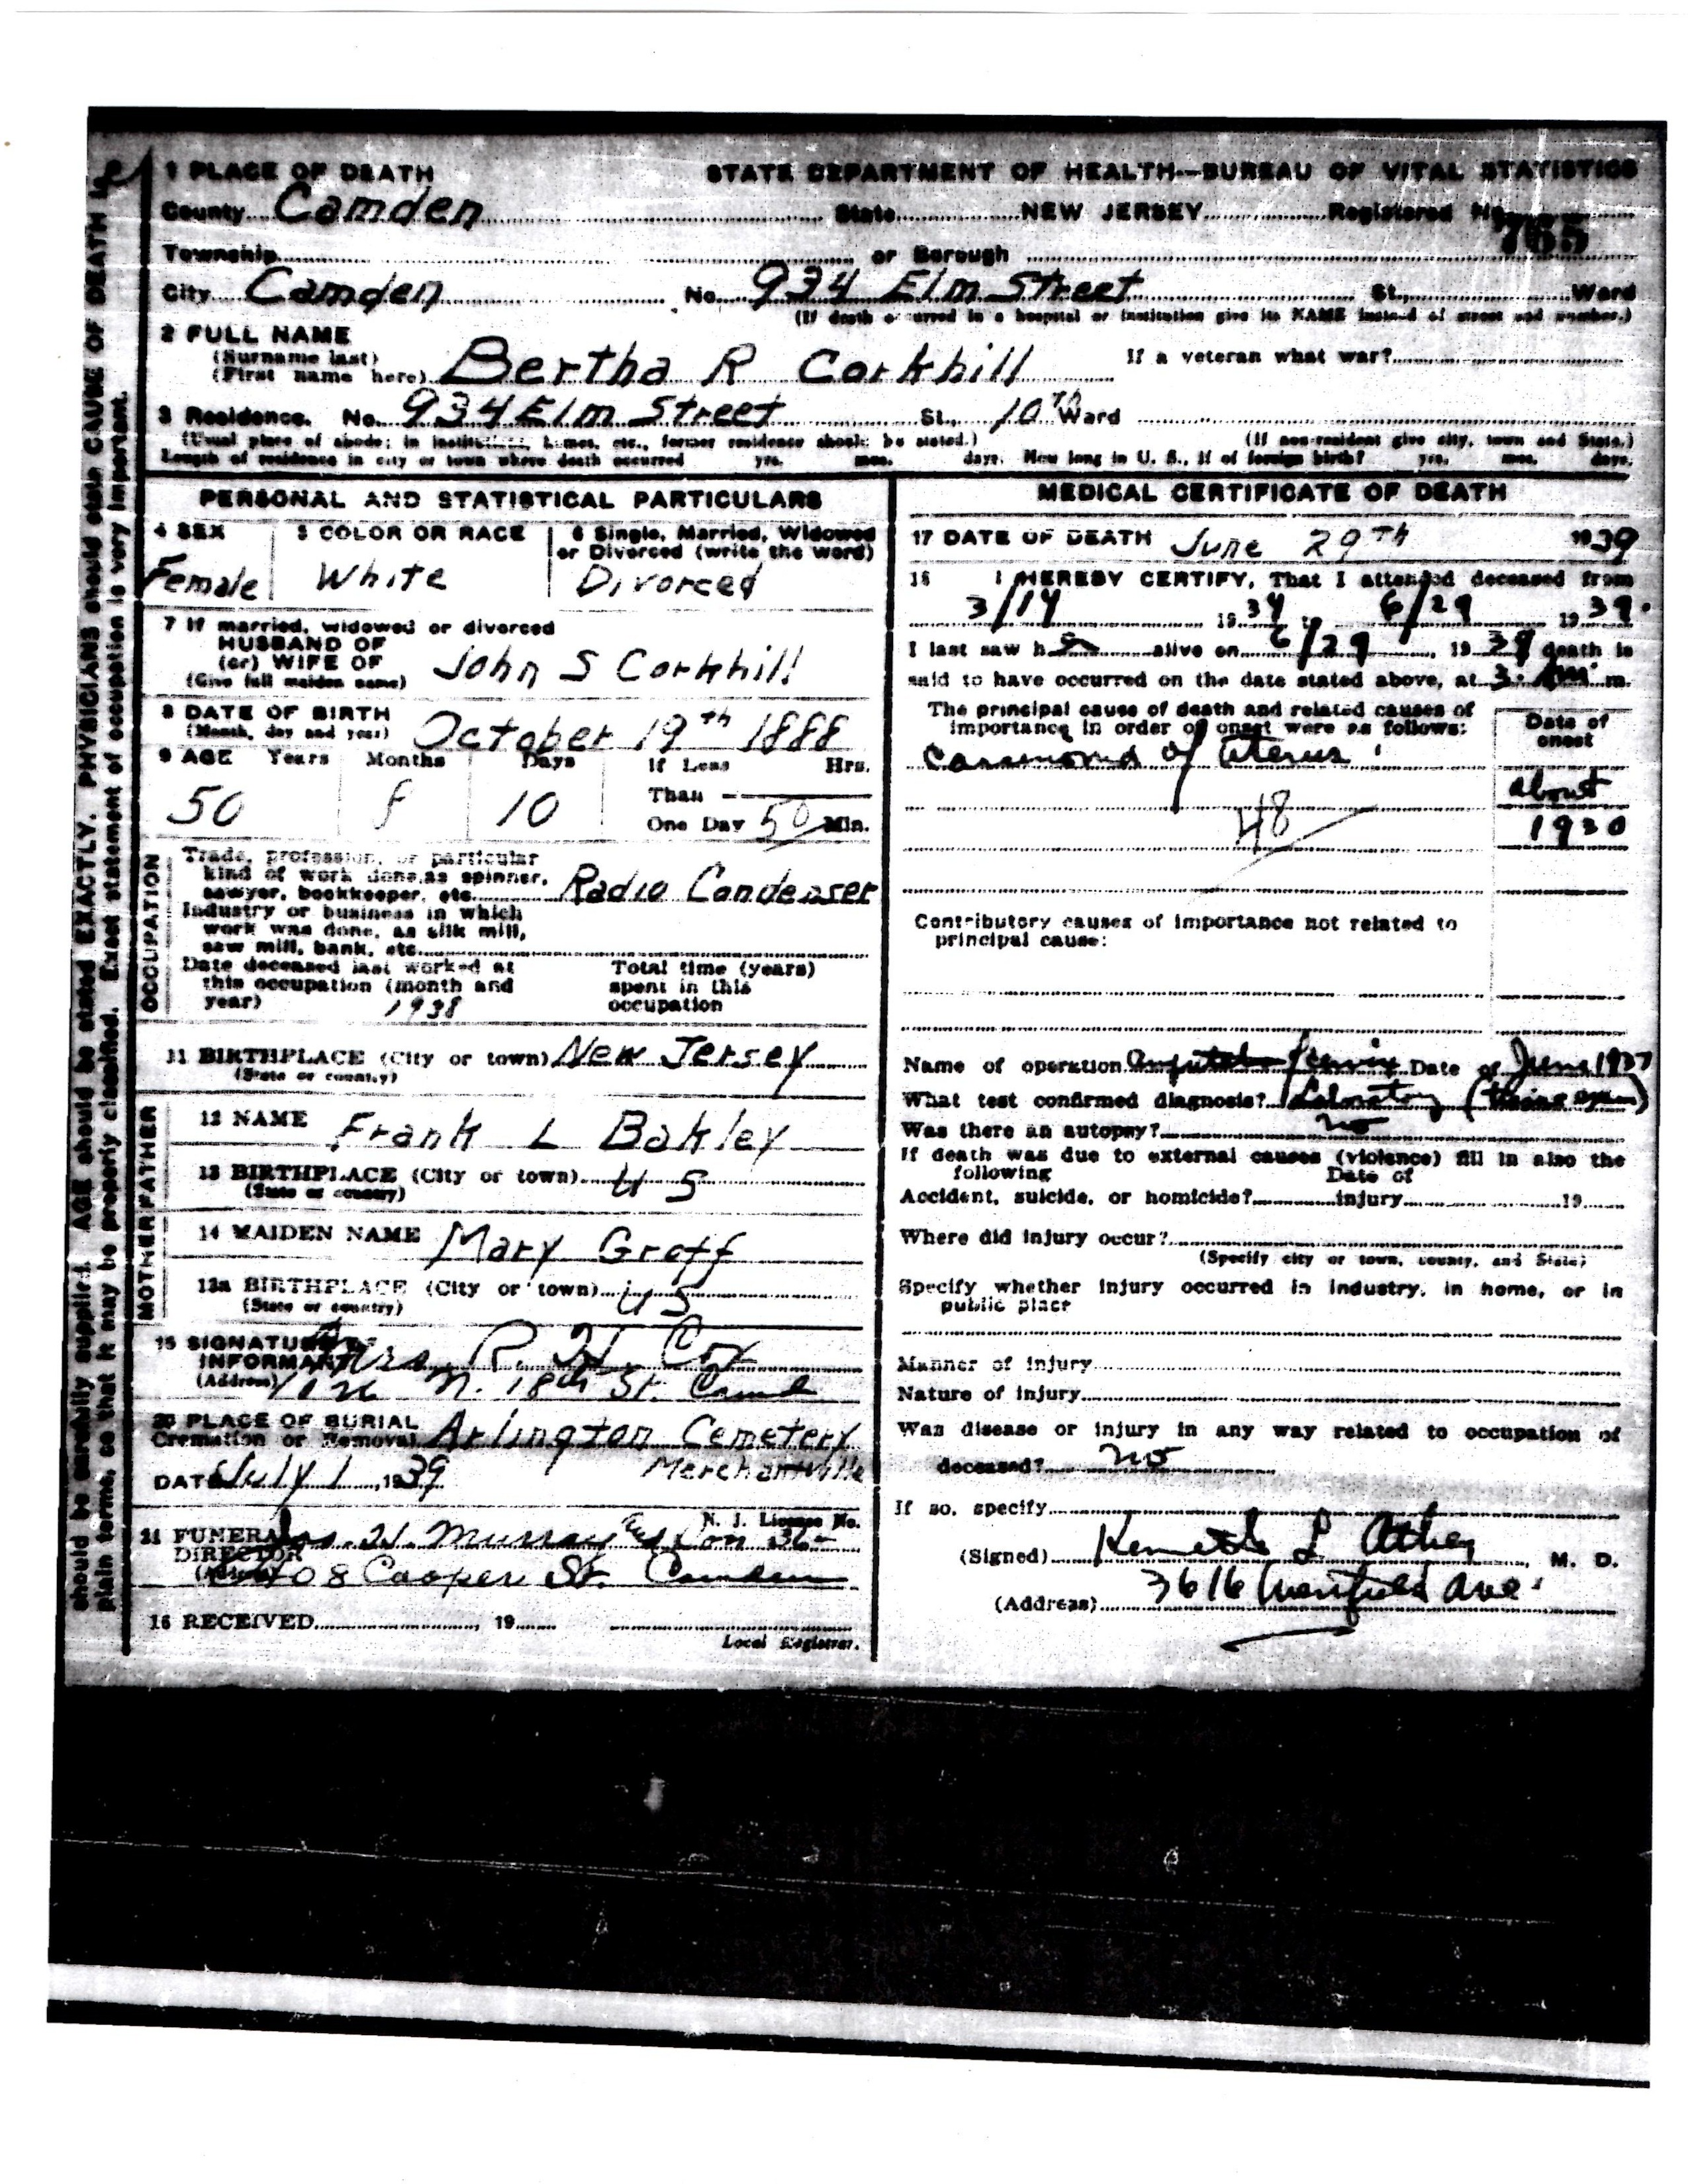 1 PLACE OF DEATH STATE DEPARTMENT OF HEALTH—BUREAU OF VITAL STATISTICS
County Camden State NEW JERSEY Registered No. 765
Township or Borough
City Camden No. 934 Elm Street St., Ward
(If death occurred in a hospital or institution give its NAME instead of street and number.)
2 FULL NAME
(Surname last)
(First name here) Bertha R Corkhill If a veteran what war?
3 Residence. No. 934 Elm Street St., 10th Ward
(Usual place of abode; in institutions, homes, etc., former residence should be stated.) (If non-resident give city, town and State.)
Length of residence in city or town where death occurred yrs. mos. days. How long in U. S., if of foreign birth? yrs. mos. days.
PERSONAL AND STATISTICAL PARTICULARS
4 SEX 5 COLOR OR RACE 6 Single, Married, Widowed
or Divorced (write the word)
Female White Divorced
7 If married, widowed or divorced
HUSBAND OF
(or) WIFE OF
(Give full maiden name) John S Corkhill
8 DATE OF BIRTH
(Month, day and year) October 19th 1888
9 AGE Years Months Days If Less Hrs.
Than
50 8 10 One Day 50 Min.
OCCUPATION
Trade, profession, or particular
kind of work done, as spinner,
sawyer, bookkeeper, etc. Radio Condenser
Industry or business in which
work was done, as silk mill,
saw mill, bank, etc.
Date deceased last worked at Total time (years)
this occupation (month and spent in this
year) 1938 occupation
11 BIRTHPLACE (City or town) New Jersey
(State or country)
FATHER
12 NAME Frank L Bakley
13 BIRTHPLACE (City or town) U S
(State or country)
MOTHER
14 MAIDEN NAME Mary Groff
13a BIRTHPLACE (City or town) U S
(State or country)
15 SIGNATURE OF
INFORMANT Mrs. R. H. Cox
(Address) N. 18th St. Camd
20 PLACE OF BURIAL
Cremation or Removal Arlington Cemetery
Merchantville
DATE July 1, 1939
N. J. License No.
21 FUNERAL H. Murray Son
DIRECTOR
(Address) 408 Cooper St. Camden
16 RECEIVED , 19
Local Registrar.
MEDICAL CERTIFICATE OF DEATH
17 DATE OF DEATH June 29th 1939
18 I HEREBY CERTIFY, That I attended deceased from
3/14 19 to 6/29 1939.
I last saw h alive on 6/29, 1939 death is
said to have occurred on the date stated above, at 3. AM m.
The principal cause of death and related causes of
importance in order of onset were as follows: Date of
onset
Carcinoma of Uterus
about
48
1930
Contributory causes of importance not related to
principal cause:
Name of operation Cervix Date of June 1937
What test confirmed diagnosis? Laboratory
Was there an autopsy? no
If death was due to external causes (violence) fill in also the
following Date of
Accident, suicide, or homicide? injury 19
Where did injury occur?
(Specify city or town, county, and State)
Specify whether injury occurred in industry, in home, or in
public place
Manner of injury
Nature of injury
Was disease or injury in any way related to occupation of
deceased? no
If so, specify
(Signed) Kenneth L Athey M. D.
(Address) 3616 Ave
should be carefully supplied. AGE should be stated EXACTLY. PHYSICIANS should state CAUSE OF DEATH in
plain terms, so that it may be properly classified. Exact statement of occupation is very important.